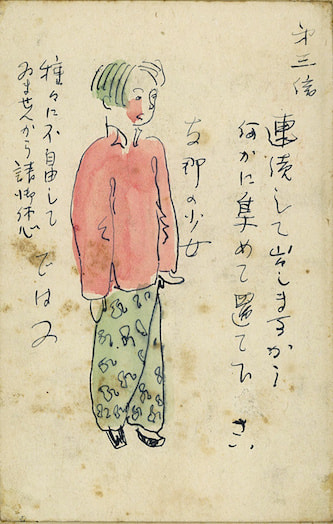 第三信
連続して出しますから
何かに集めて置て下さい
支那の少女
種々に不自由して
ゐませんから請御休心
では又